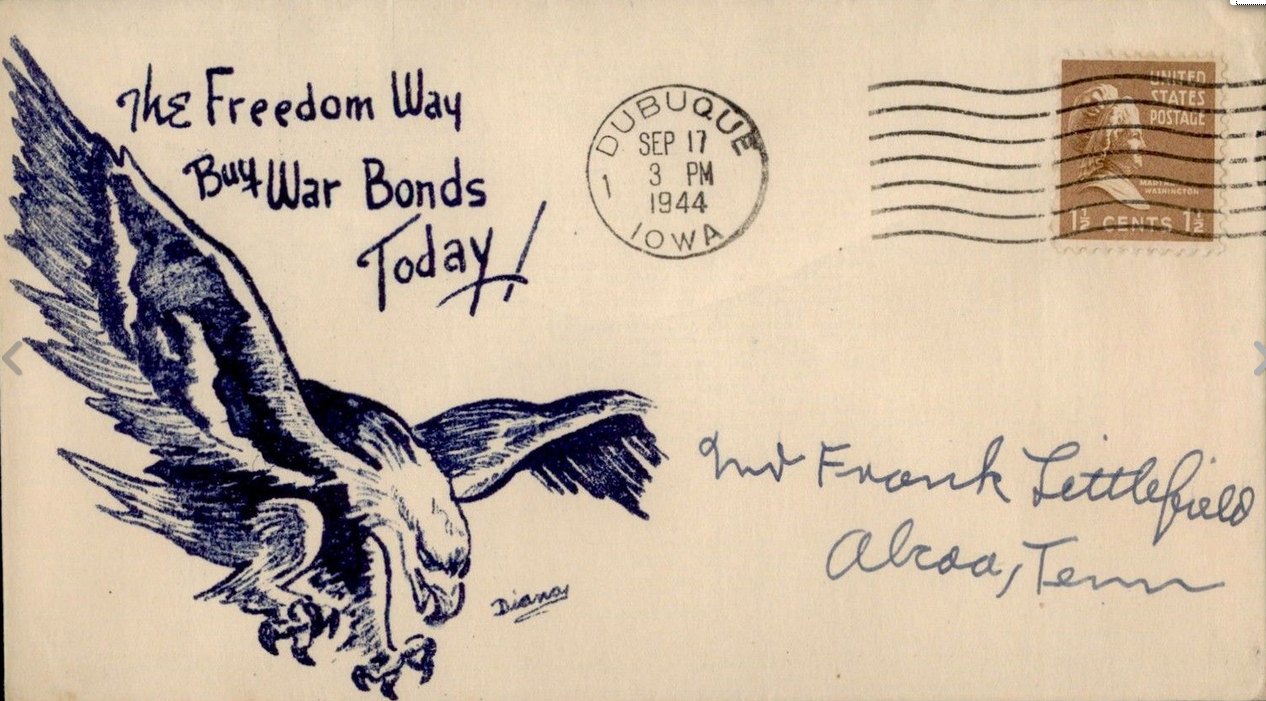 The Freedom Way
Buy War Bonds
Today!
DUBUQUE
SEP 17
3 PM
1944
1
IOWA
UNITED
STATES
POSTAGE
MARTHA
WASHINGTON
1½ CENTS 1½
Frank Littlefield
Alcoa, Tenn
Diana